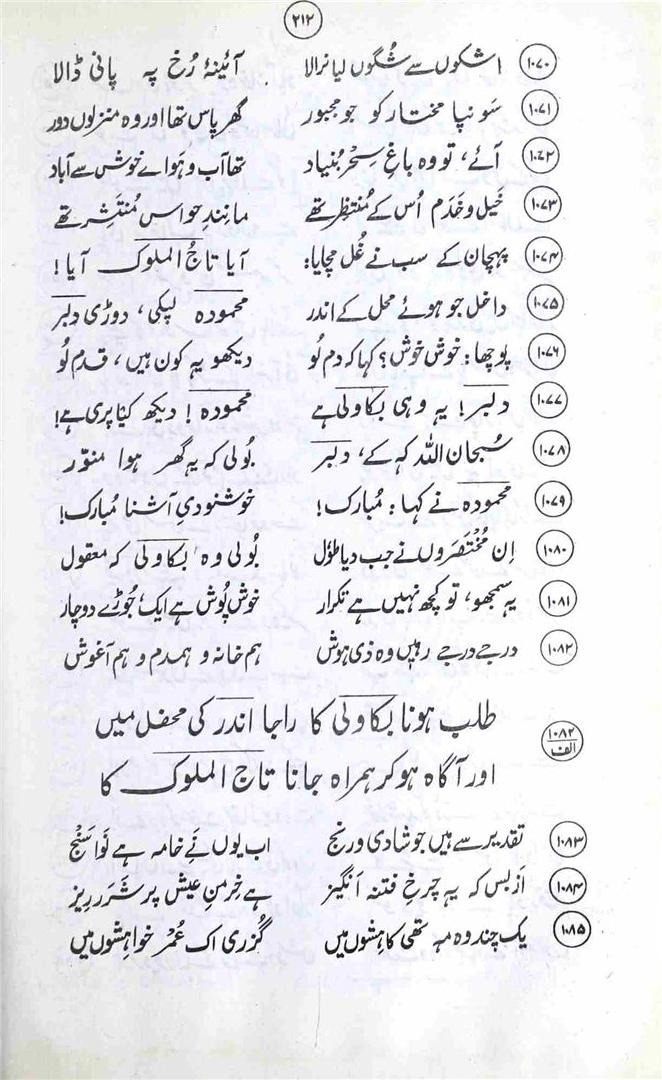 ۲۱۲
۱۰۷۰ اشکوں سے شُگوں لیا نرالا آئینۂ رُخ پہ پانی ڈالا
۱۰۷۱ سَونپا مختار کو جو مجبور گھر پاس تھا اور وہ منزلوں دور
۱۰۷۲ آئے، تو وہ باغِ سِحْر بُنیاد تھا آب و ہواے خوش سے آباد
۱۰۷۳ خَیل و خَدَم اُس کے مُنتظِر تھے مانندِ حواس مُنتَشِر تھے
۱۰۷۴ پہچان کے سب نے غُل مچایا: آیا تاجُ الملوک آیا!
۱۰۷۵ داخل جو ہوئے محل کے اندر محمودہ لپکی، دوڑی دلبر
۱۰۷۶ پوچھا: خوش خوش؟ کہا کہ دم لُو دیکھو یہ کون ہیں، قدم لُو
۱۰۷۷ دلبر! یہ وہی بکاولی ہے محمودہ! دیکھ کیا پری ہے!
۱۰۷۸ سُبحان اللہ کہہ کے، دلبر بُولی کہ یہ گھر ہوا منوّر
۱۰۷۹ محمودہ نے کہا: مُبارک! خوشنودیِ آشنا مُبارک!
۱۰۸۰ اِن مُخْتَصَروں نے جب دیا طوٗل بُولی وہ بکاولی کہ معقول
۱۰۸۱ یہ سمجھو، تو کچھ نہیں ہے تکرار خوش پُوش ہے ایک، جُوڑے دو چار
۱۰۸۲ درجے درجے رہیں وہ ذی ہوش ہم خانہ و ہمدم و ہم آغوش
۱۰۸۲ الف طلب ہونا بکاولی کا راجا اندر کی محفل میں
اور آگاہ ہو کر ہمراہ جانا تاج الملوک کا
۱۰۸۳ تقدیر سے ہیں جو شادی و رنج اب یوں نَےِ خامہ ہے نَوا سَنْج
۱۰۸۴ از بس کہ یہ چرخِ فتنہ انگیز ہے خِرمنِ عیش پر شَرَر ریز
۱۰۸۵ یک چند وہ مہ تھی کاہشوں میں گُزری اک عُمْر خواہشوں میں